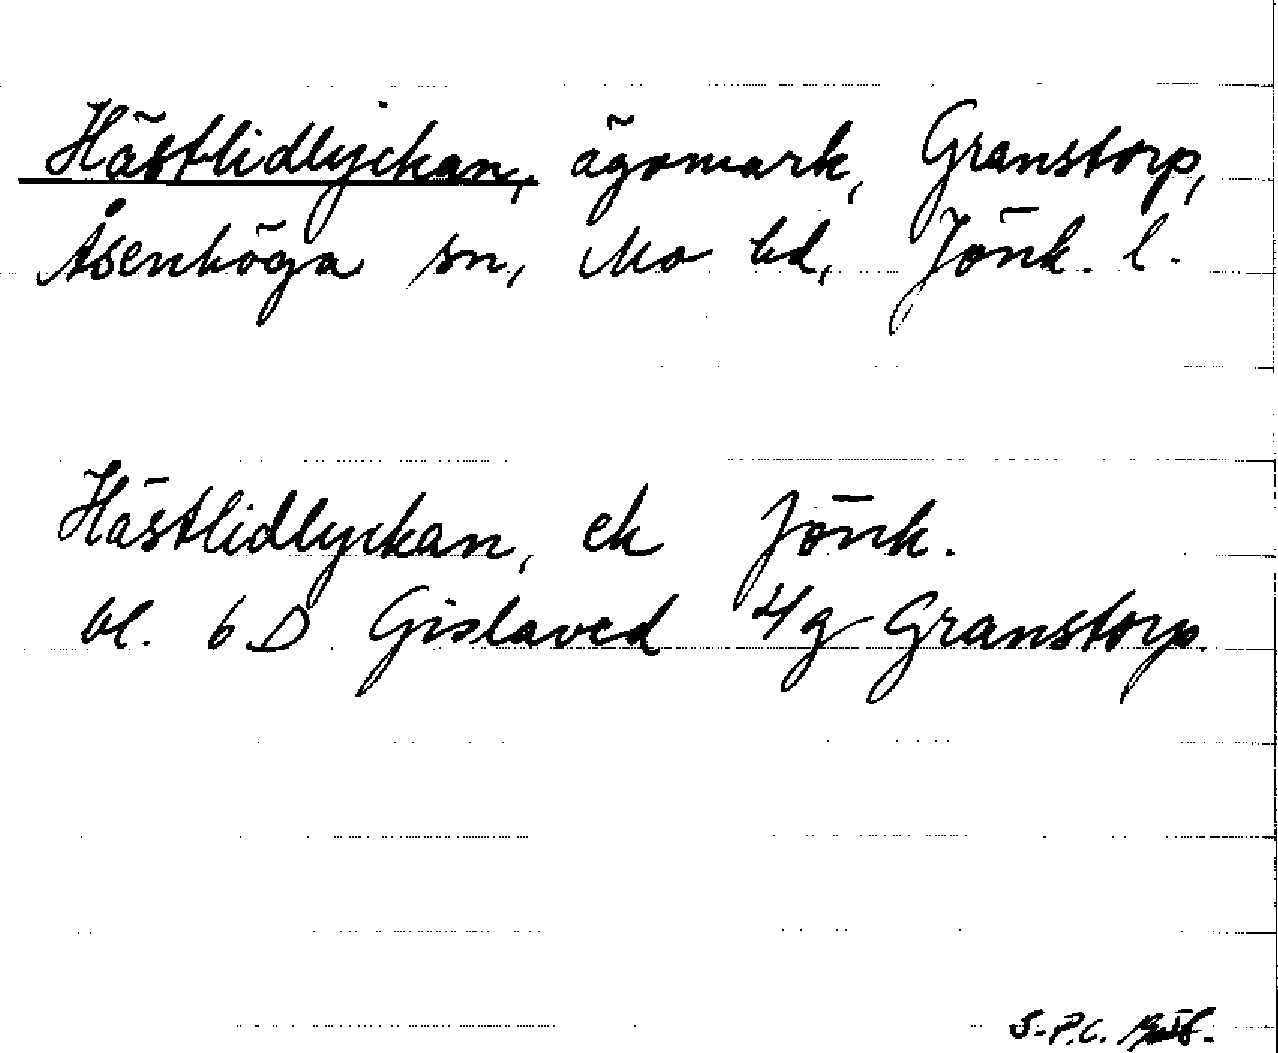 Hästlidlyckan, ägomark, Granstorp,
Åsenhöga sn, Mo hd, Jönk. l.
Hästlidlyckan, ek Jönk.
bl. 6 D Gislaved 4g Granstorp.
S-P.C.